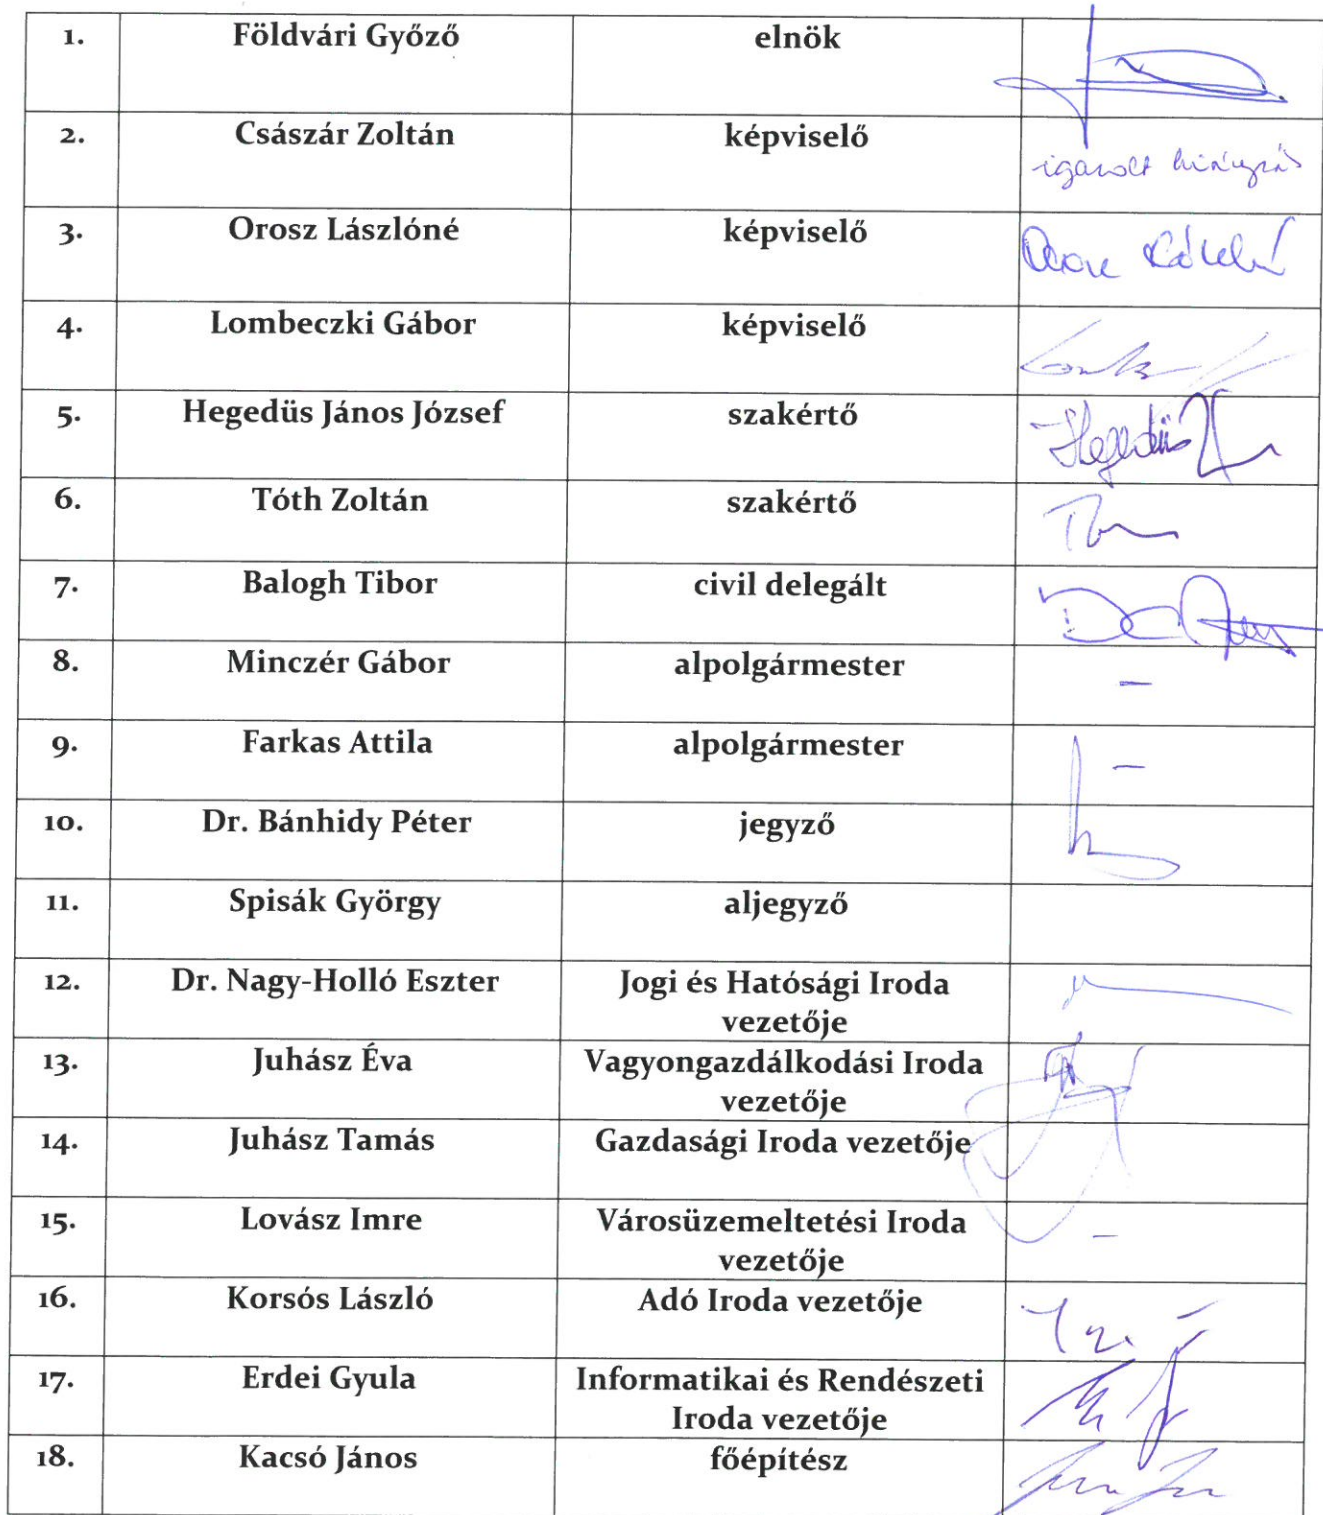 1. Földvári Győző elnök
2. Császár Zoltán képviselő igazolt hiányzás
3. Orosz Lászlóné képviselő
4. Lombeczki Gábor képviselő
5. Hegedüs János József szakértő Hegedüs
6. Tóth Zoltán szakértő
7. Balogh Tibor civil delegált
8. Minczér Gábor alpolgármester –
9. Farkas Attila alpolgármester –
10. Dr. Bánhidy Péter jegyző
11. Spisák György aljegyző
12. Dr. Nagy-Holló Eszter Jogi és Hatósági Iroda
vezetője
13. Juhász Éva Vagyongazdálkodási Iroda
vezetője
14. Juhász Tamás Gazdasági Iroda vezetője
15. Lovász Imre Városüzemeltetési Iroda –
vezetője
16. Korsós László Adó Iroda vezetője
17. Erdei Gyula Informatikai és Rendészeti
Iroda vezetője
18. Kacsó János főépítész